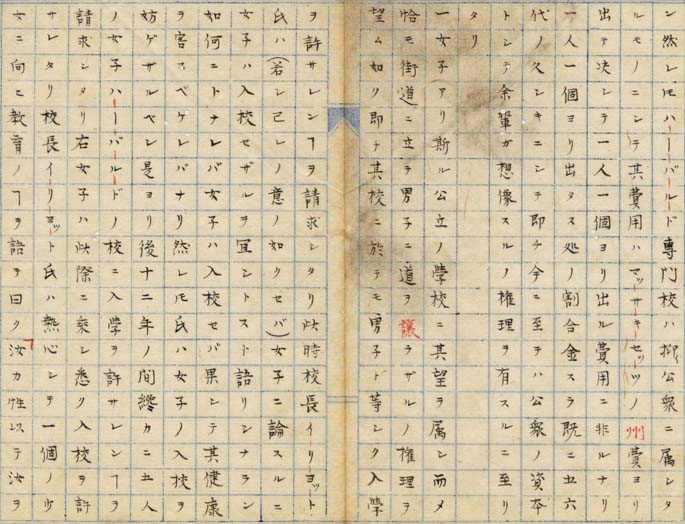 シ然レ𪜈ハーバールド専門校ハ抑公衆ニ属シタ
ルモノニシテ其費用ハマッサーキーセッツノ州費ヨリ
出テ决シテ一人一個ヨリ出ル費用ニ非ルナリ
一人一個ヨリ出タス処ノ割合金スラ既ニ五六
代ノ久シキニシテ即チ今ニ至テハ公衆ノ資本
トシテ余輩ガ想像スルノ権理ヲ有スルニ至リ
タリ
一女子アリ斯ル公立ノ學校ニ其望ヲ属シ而メ
恰モ街道ニ立テ男子ニ道ヲ讓ラザルノ権理ヲ
望ム如ク即チ其校ニ於テモ男子ト等シク入學
ヲ許サレンヿヲ請求シタリ此時校長イーリヨット
氏ハ(若シ己レノ意ノ如クセバ)女子ニ論スルニ
女子ハ入校セザルヲ冝シトスト語リシナラン
如何ニトナレバ女子ハ入校セバ果シテ其健康
ヲ害スベケレバナリ然レ𪜈氏ハ女子ノ入校ヲ
妨ゲザルベシ是ヨリ後十二年ノ間纔カニ五人
ノ女子ハーバールドノ校ニ入學ヲ許サレンヿヲ
請求シタリ右女子ハ此際ニ乗シ悉ク入校ヲ許
サレタリ校長イーリヨット氏ハ熱心シテ一個ノ少
女ニ向ヒ教育ノヿヲ語テ曰ク汝カ性以テ汝ヲ